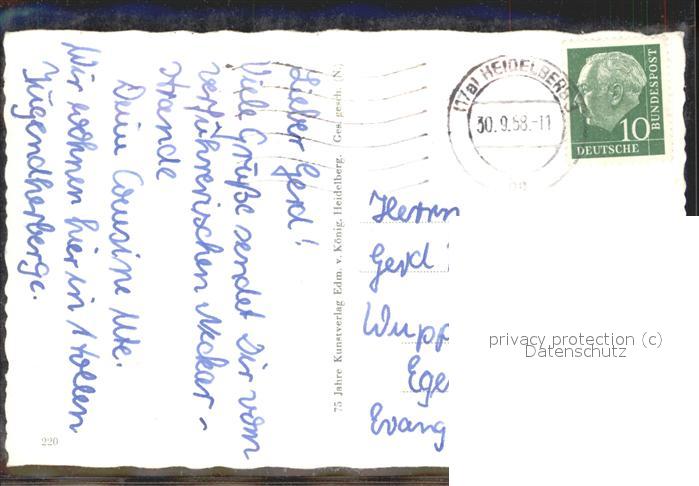 Lieber Gerd!
Viele Grüße sendet Dir vom
verführerischen Neckar-
strande
Deine Cousine Ute.
Wir wohnen hier in 1 tollen
Jugendherberge.
220
75 Jahre Kunstverlag Edm. v. König, Heidelberg. Ges. gesch. (N)
HEIDELBERG
30.9.58.-11
10
DEUTSCHE
BUNDESPOST
Herrn
Gerd
Wupp
Ege
Evang
privacy protection (c)
Datenschutz